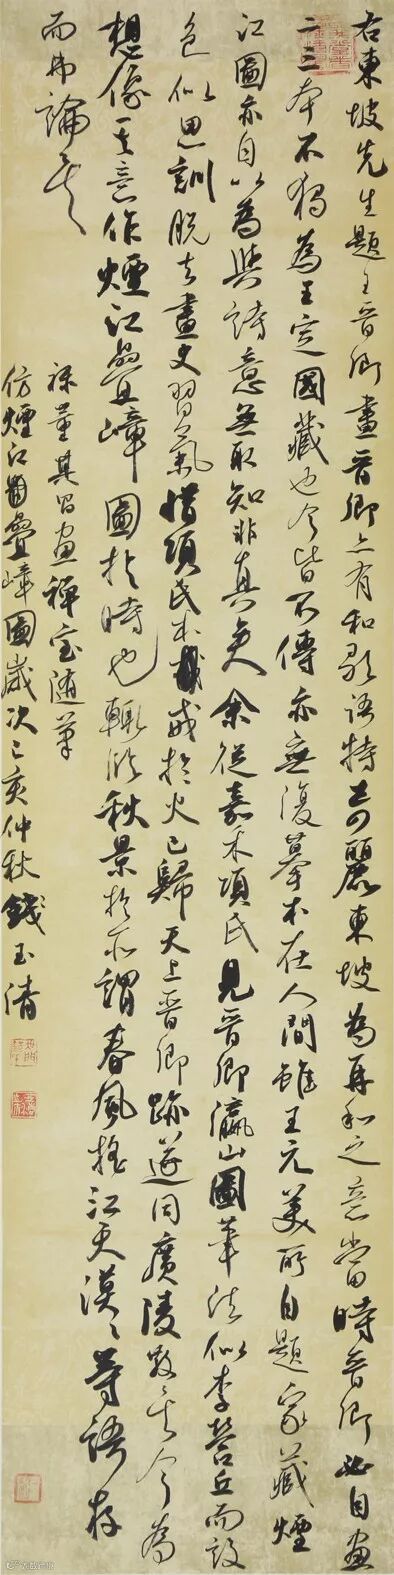 右東坡先生題王晉卿畫晉卿亦有和歌語特奇麗東坡為再和之意當時晉卿必自畫
二三本不獨為王定國藏也今皆不傳亦無復摹本在人間雖王元美所自題家藏煙
江圖亦自以為與詩意無取知非真矣余從嘉禾項氏見晉卿瀛山圖筆法似李營丘而設
色似思訓脫去畫史習氣惜項氏本戒於火已歸天上晉卿跡遂同廣陵散矣今為
想像其意作煙江疊嶂圖於時也輒作秋景於所謂春風搖江天漠漠等語存
而弗論矣
錄董其昌畫禪室隨筆
仿煙江疊嶂圖歲次乙亥仲秋錢玉清